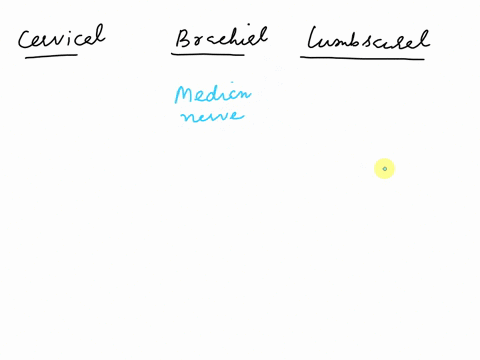 Cervical Brachial Lumbscurel
Median
nerve